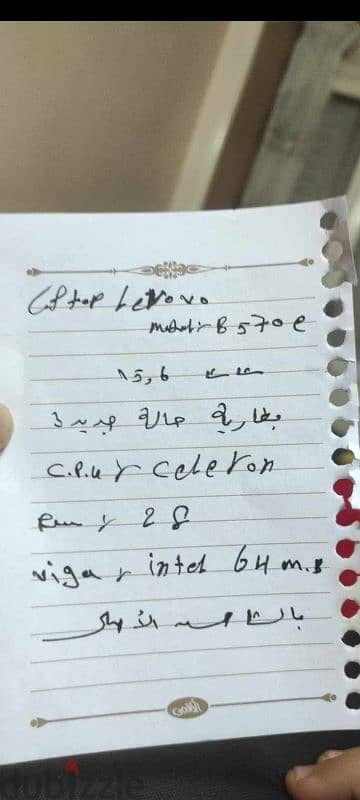 Laptop Lenovo
Model:- B570e
شاشة 15,6
بطارية حالة جديد
C.P.U :- Celeron
Ram :- 2 G
viga :- intel 64 m.B
بالشاحن الأصلي
dubizzle